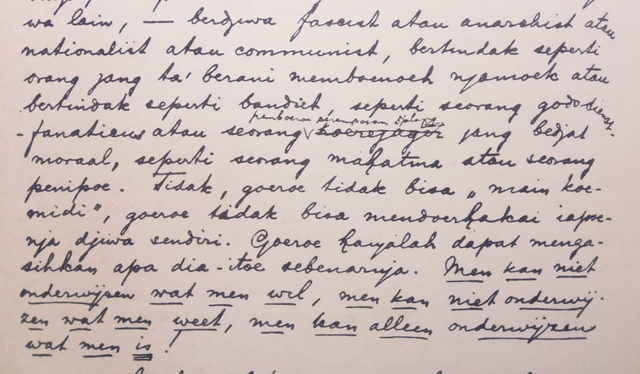 wa lain, — berdjiwa fascist atau anarchist atau
nationalist atau communist, bertindak seperti
orang jang ta' berani memboenoeh njamoek atau
bertindak seperti bandiet, seperti seorang godsdienst-
pemboeroe perempoean
fanaticus atau seorang hoerejager jang bedjat
moraal, seperti seorang mahatma atau seorang
penipoe. Tidak, goeroe tidak bisa „main koe-
midi", goeroe tidak bisa mendoerhakai iapoe-
nja djiwa sendiri. Goeroe hanjalah dapat menga-
sihkan apa dia-itoe sebenarnja. Men kan niet
onderwijsen wat men wil, men kan niet onderwij-
zen wat men weet, men kan alleen onderwijzen
wat men is!